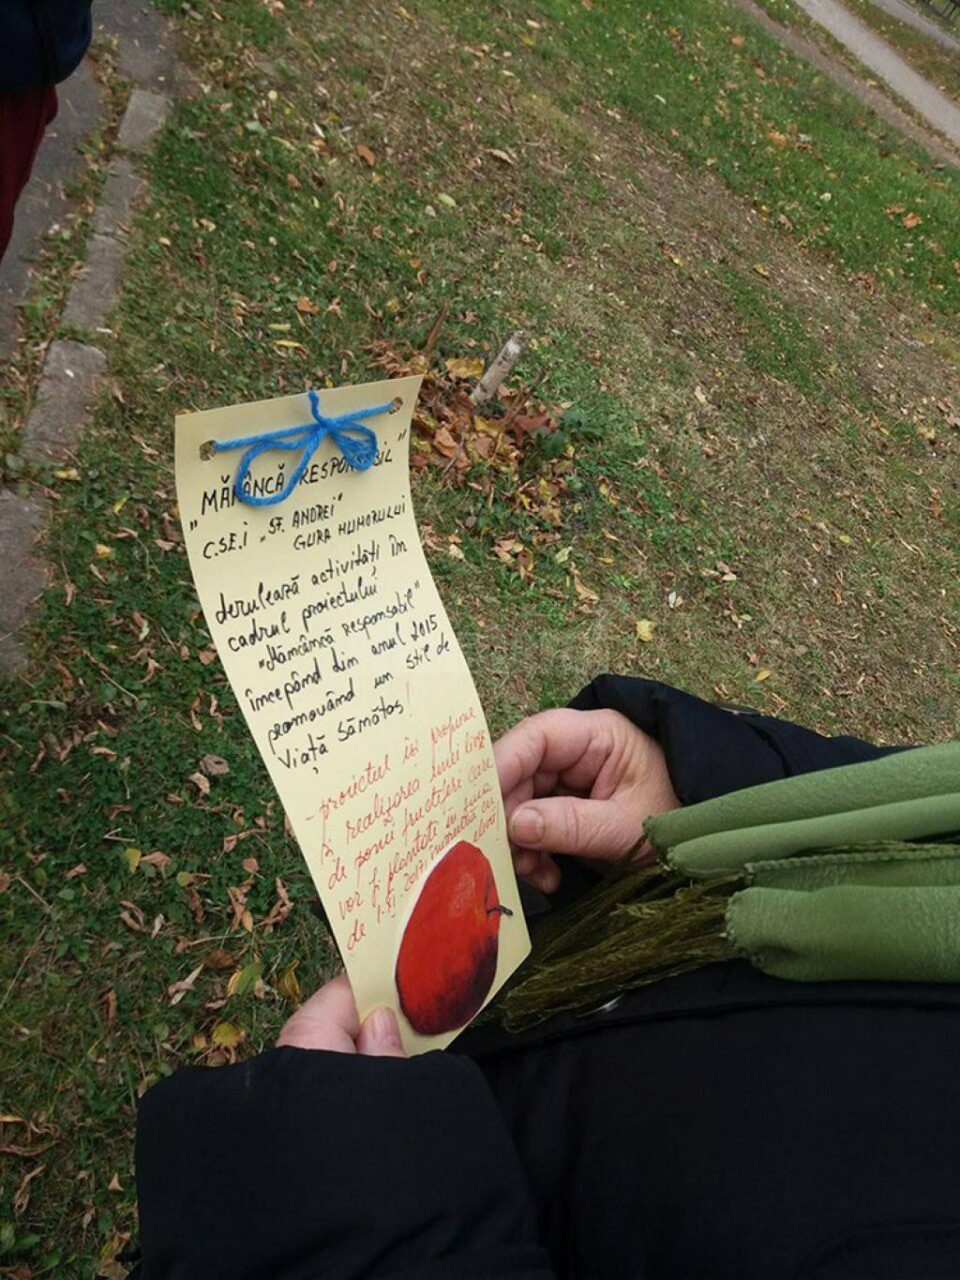 "MĂNÂNCĂ RESPONSABIL"
C.S.E.I „SF. ANDREI"
GURA HUMORULUI
derulează activități în
cadrul proiectului
"Mănâncă responsabil"
începând din anul 2015
promovând un stil de
viață sănătos!
- proiectul își propune
și realizarea unei livezi
de pomi fructiferi care
vor fi plantați în ziua
de 1.XI.2017, împreună cu
elevii!